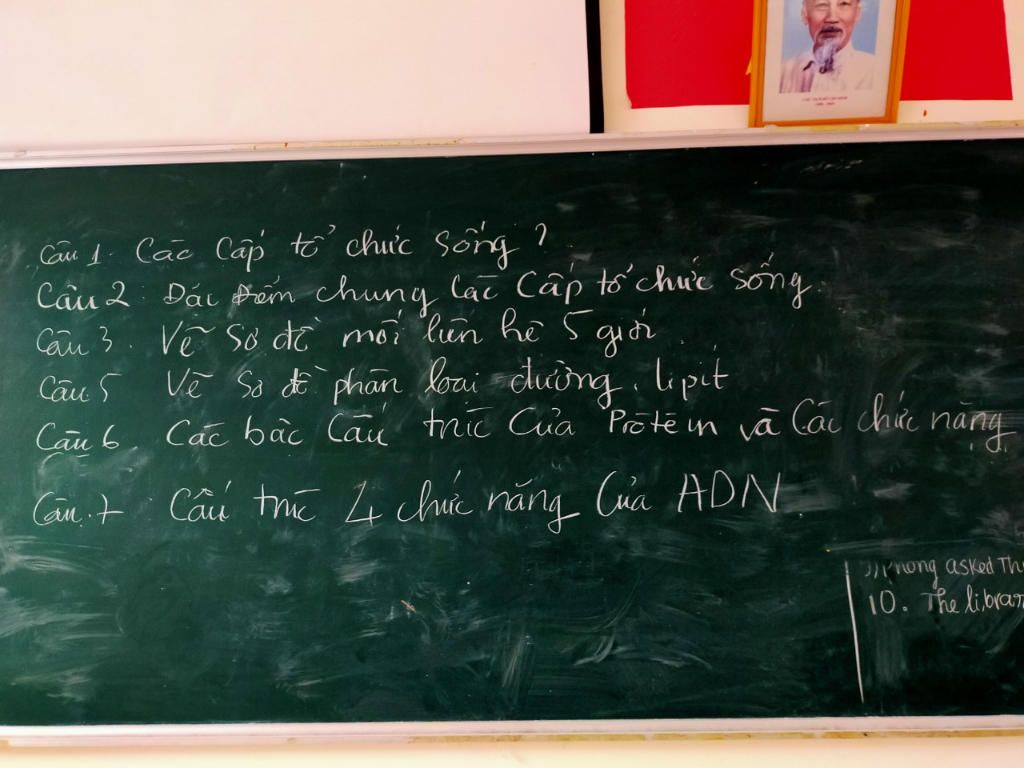 Câu 1. Các Cấp tổ chức sống ?
Câu 2: Đặc điểm chung các Cấp tổ chức sống.
Câu 3. Vẽ Sơ đồ mối liên hệ 5 giới.
Câu 5 Vẽ Sơ đồ phân loại đường, lipit
Câu 6. Các bậc Cấu trúc Của Prôtêin và Các chức năng
Câu 7: Cấu trúc & chức năng Của ADN
asked
10. The